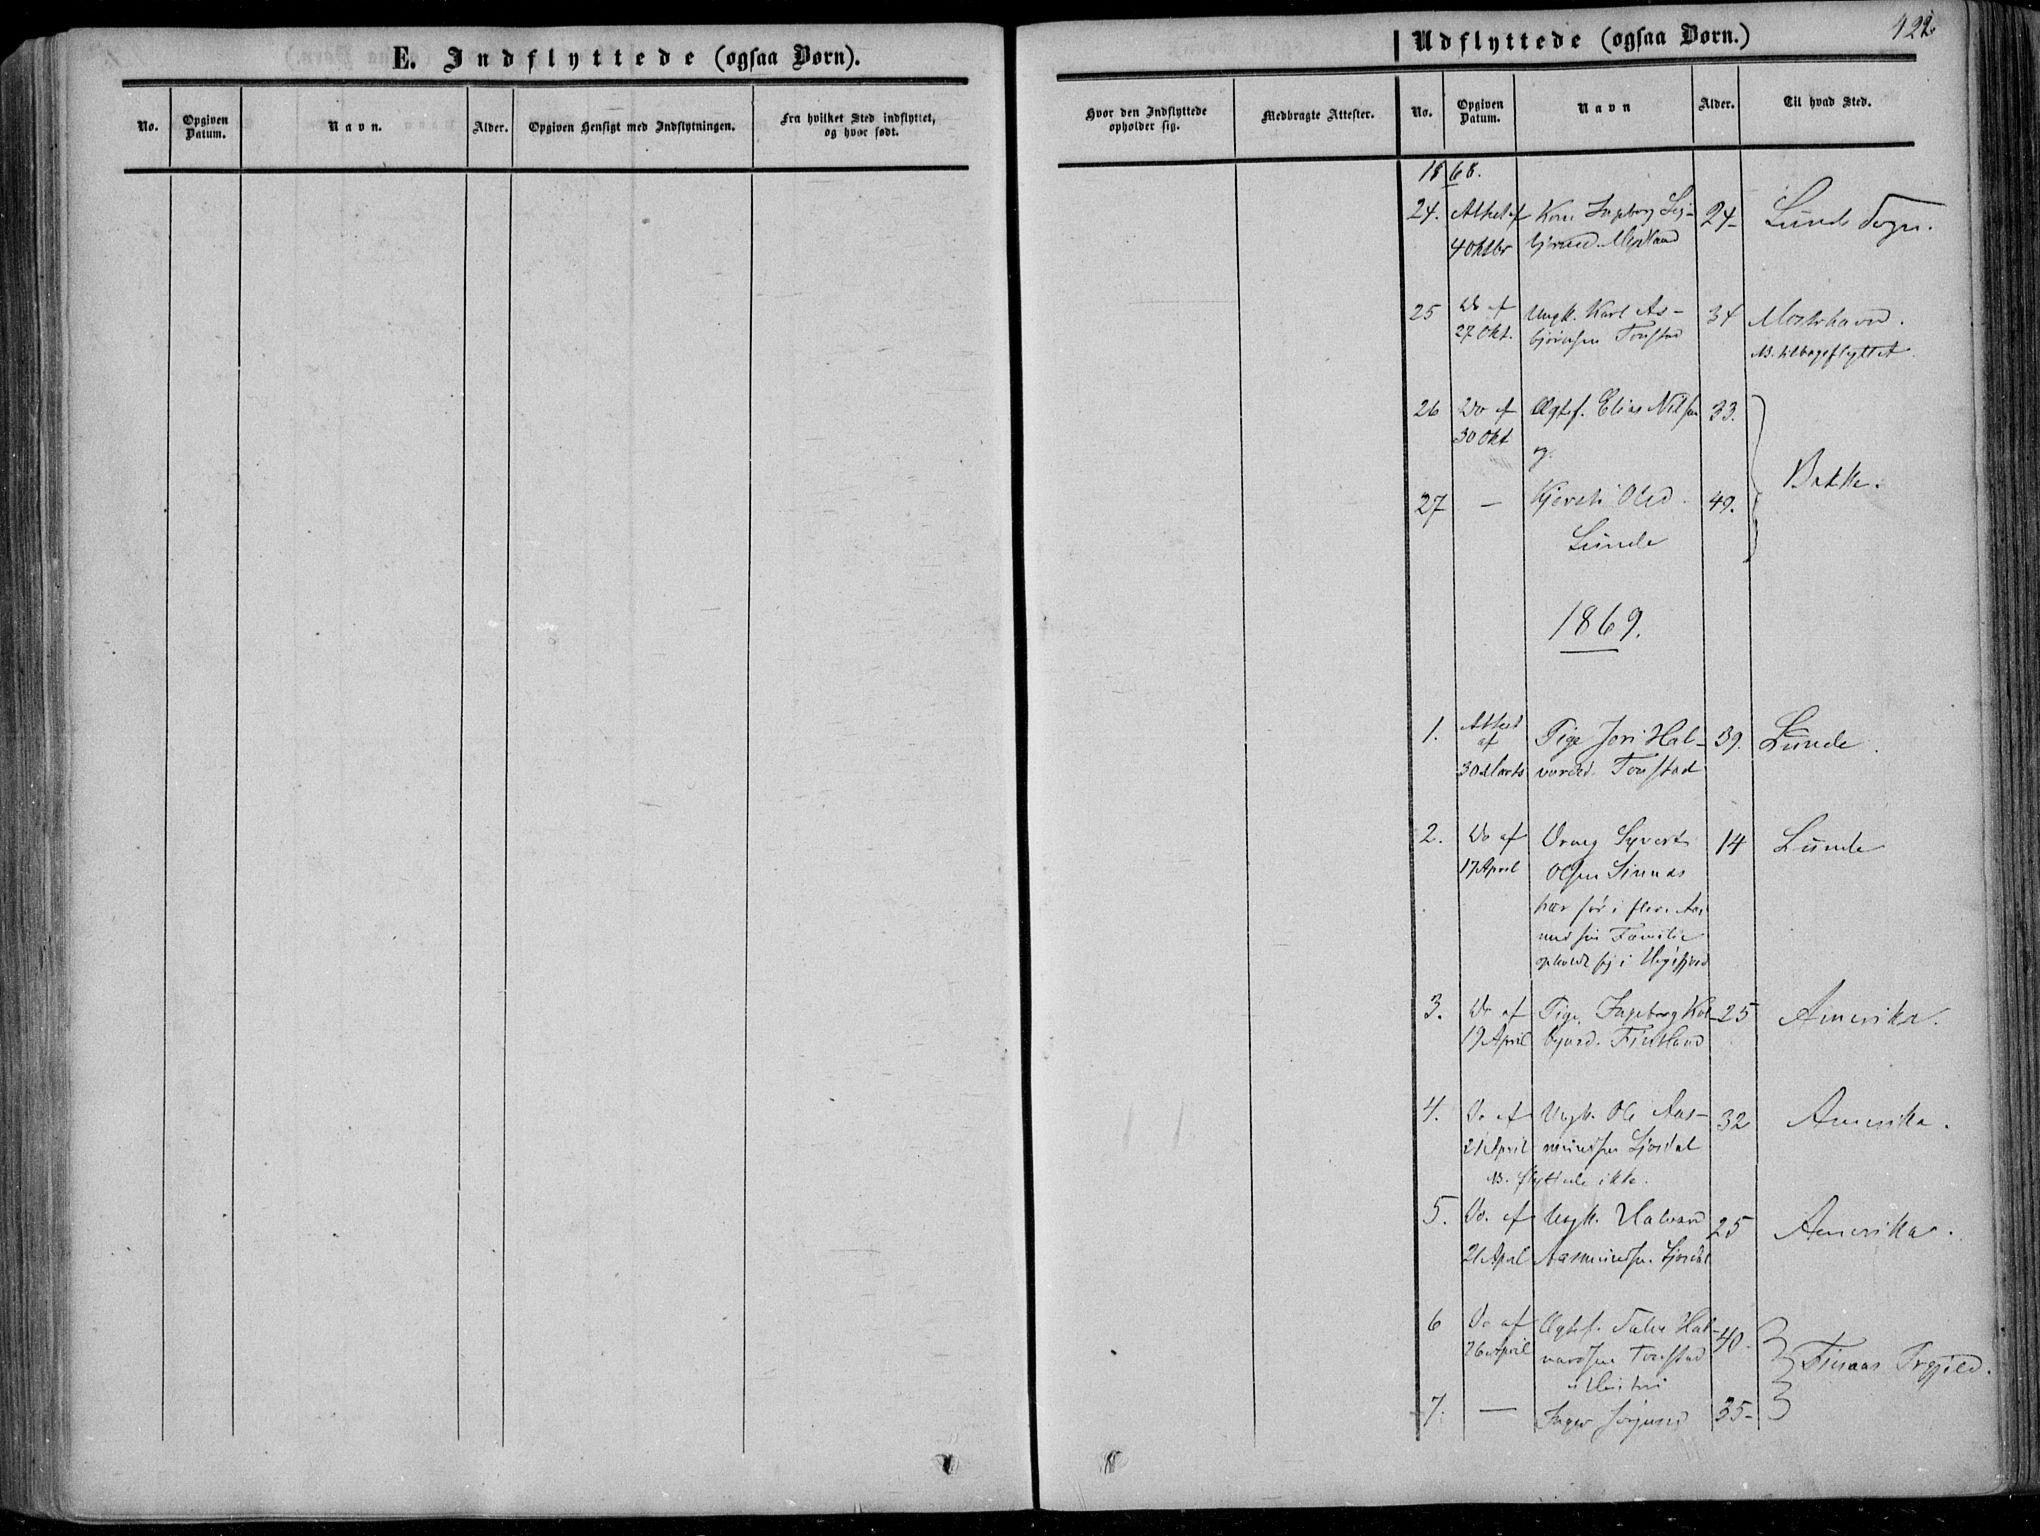 E. Indflyttede (ogsaa Børn).
No.
Opgiven Datum.
Navn.
Alder.
Opgiven Hensigt med Indflytningen.
Fra hvilket Sted indflyttet, og hvor født.
Udflyttede (ogsaa Børn.)
422.
Hvor den Indflyttede opholder sig.
Medbragte Attester.
No.
Opgiven Datum.
Navn
Alder.
Til hvad Sted.
1868.
24. Attest af Kone Ingeborg Sig- 24- Lunde Sogn.
4 Oktbr
25 Do af Ungk. Karl As- 34
27 Okt. bjørnsen Tonstad NB. tilbageflyttet.
26 Do af Ægtef. Elias Nilsen 33.
30 Okt og
Bakke.
27 — Kjersti Olsd. 49.
Lunde
1869.
1. Attest af Pige Jori Hal- 39. Lunde.
30 Marts vorsd. Tonstad
2. Do af Dreng Syvert 14 Lunde
17 April Olsen Sinnes
har før i flere Aar
med sin Familie
opholdt sig i
3. Do af Pige Ingeborg Kol- 25 Amerika.
19 April Fintland
4. Do af Ungk. Ole Aas- 32 Amerika.
21 April mundsen
NB. flyttede ikke.
5. Do. af Ungk. Halvard 25 Amerika.
21 April Aasmundsen
6 Do af Ægtef. Hal- 40.
26 April vardsen Tonstad
7. — Inger 35-